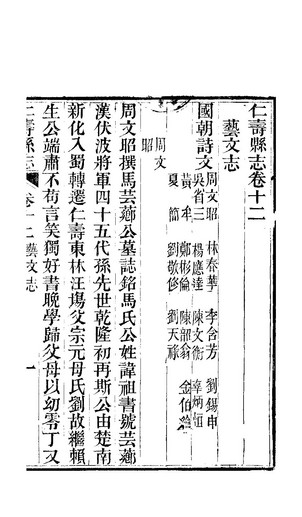 仁壽縣志卷十二
藝文志
國朝詩文
周文昭 林春華 李含芳 劉錫申
吳省三 楊應逵 陳文衡 辜炳恒
黃牟 鄭彬倫 陳韶翁 金伯
夏簡 劉敬修 劉天祿
周文
昭
周文昭撰馬芸薌公墓誌銘馬氏公姓諱祖書號芸薌
漢伏波將軍四十五代孫先世乾隆初再斯公由楚南
新化入蜀轉遷仁壽東林汪塲父宗元母氏劉故繼賴
生公端肅不苟言笑獨好書晚學歸父母以幼零丁又
仁壽縣志 卷十二 藝文志 一